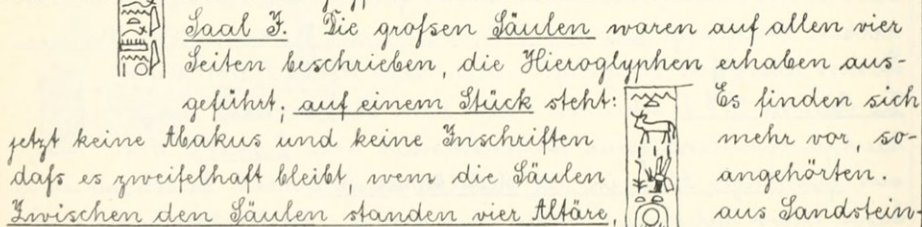 Saal J. Die großen Säulen waren auf allen vier
Seiten beschrieben, die Hieroglyphen erhaben aus-
geführt; auf einem Stück steht: Es finden sich
jetzt keine Abakus und keine Inschriften mehr vor, so-
daß es zweifelhaft bleibt, wem die Säulen angehörten.
Zwischen den Säulen standen vier Altäre, aus Sandstein-